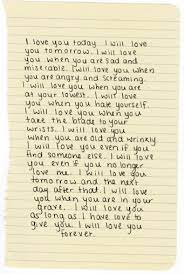 I love you today. I will love
you tomorrow. I will love
you when you are sad and
miserable. I will love you when
you are angry and screaming.
I will love you when you are
at your lowest. I will love
you when you hate yourself.
I will love you when you
take the blade to your
wrists. I will love you
when you are old and wrinkly.
I will love you even if you
find someone else. I will love
you even if you no longer
love me. I will love you
tomorrow and the next
day after that. I will love
you when you are in your
grave. I will love you
as long as I have love to
give you. I will love you
forever.